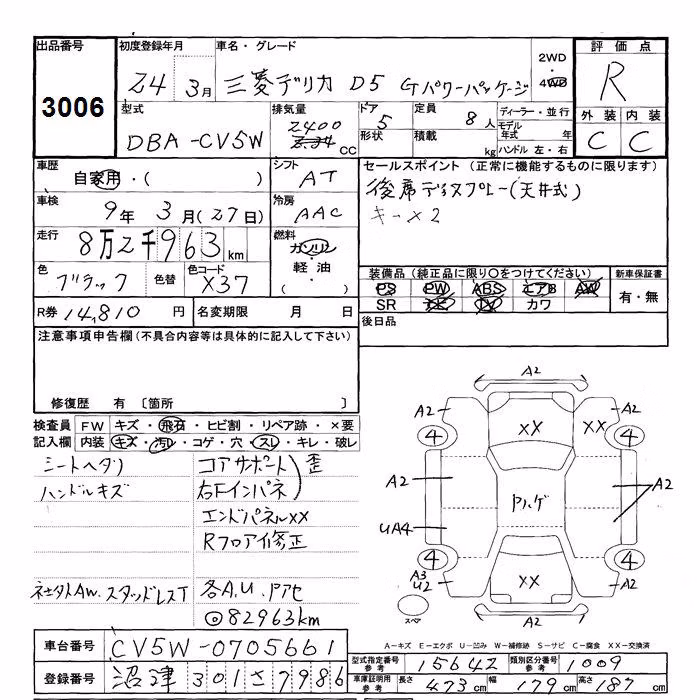 出品番号 初度登録年月 車名・グレード 2WD 評価点
3006 24年 3月 三菱デリカ D5 Gパワーパッケージ 4WD R
型式 排気量 ドア 定員 ディーラー・並行 外装 内装
DBA-CV5W 2400 CC 5 8人 モデル年式 年 C C
形状 積載 kg ハンドル 左・右
車歴 シフト セールスポイント (正常に機能するものに限ります)
自家用・( ) AT 後席ディスプレー(天井式)
車検 冷房 キー×2
9年 3月(27日) AAC
走行 燃料
8万2千963km ガソリン
色 色替 色コード 軽油・ 装備品 (純正品に限り○をつけてください) 新車保証書
ブラック X37 ( ) PS PW ABS エアB AW 有・無
SR TV カワ
R券 14,810円 名変期限 月 日 後日品
注意事項申告欄(不具合内容等は具体的に記入して下さい)
修復歴 有 〔箇所 〕
検査員 FW キズ・飛石・ヒビ割・リペア跡・×要
記入欄 内装 キズ・汚レ・コゲ・穴・スレ・キレ・破レ
シートヘタリ コアサポート 歪
ハンドルキズ 右Fインパネ
エンドパネルXX
Rフロア修正
社外AW.スタッドレスT 各A.U.
◎82963km
A2
A2 XX XX A2
4 4
A2 Pハゲ A2
UA4
4 4
A3 U2 XX A2
スペア A2
A-キズ E-エクボ U-凹み W-補修跡 S-サビ C-腐食 XX-交換済
車台番号 CV5W-0705661
型式指定番号 参考 15642 類別区分番号 参考 1009
登録番号 沼津 301 さ 7986
車庫証明用 参考 長さ 473cm 幅 179cm 高さ 187cm